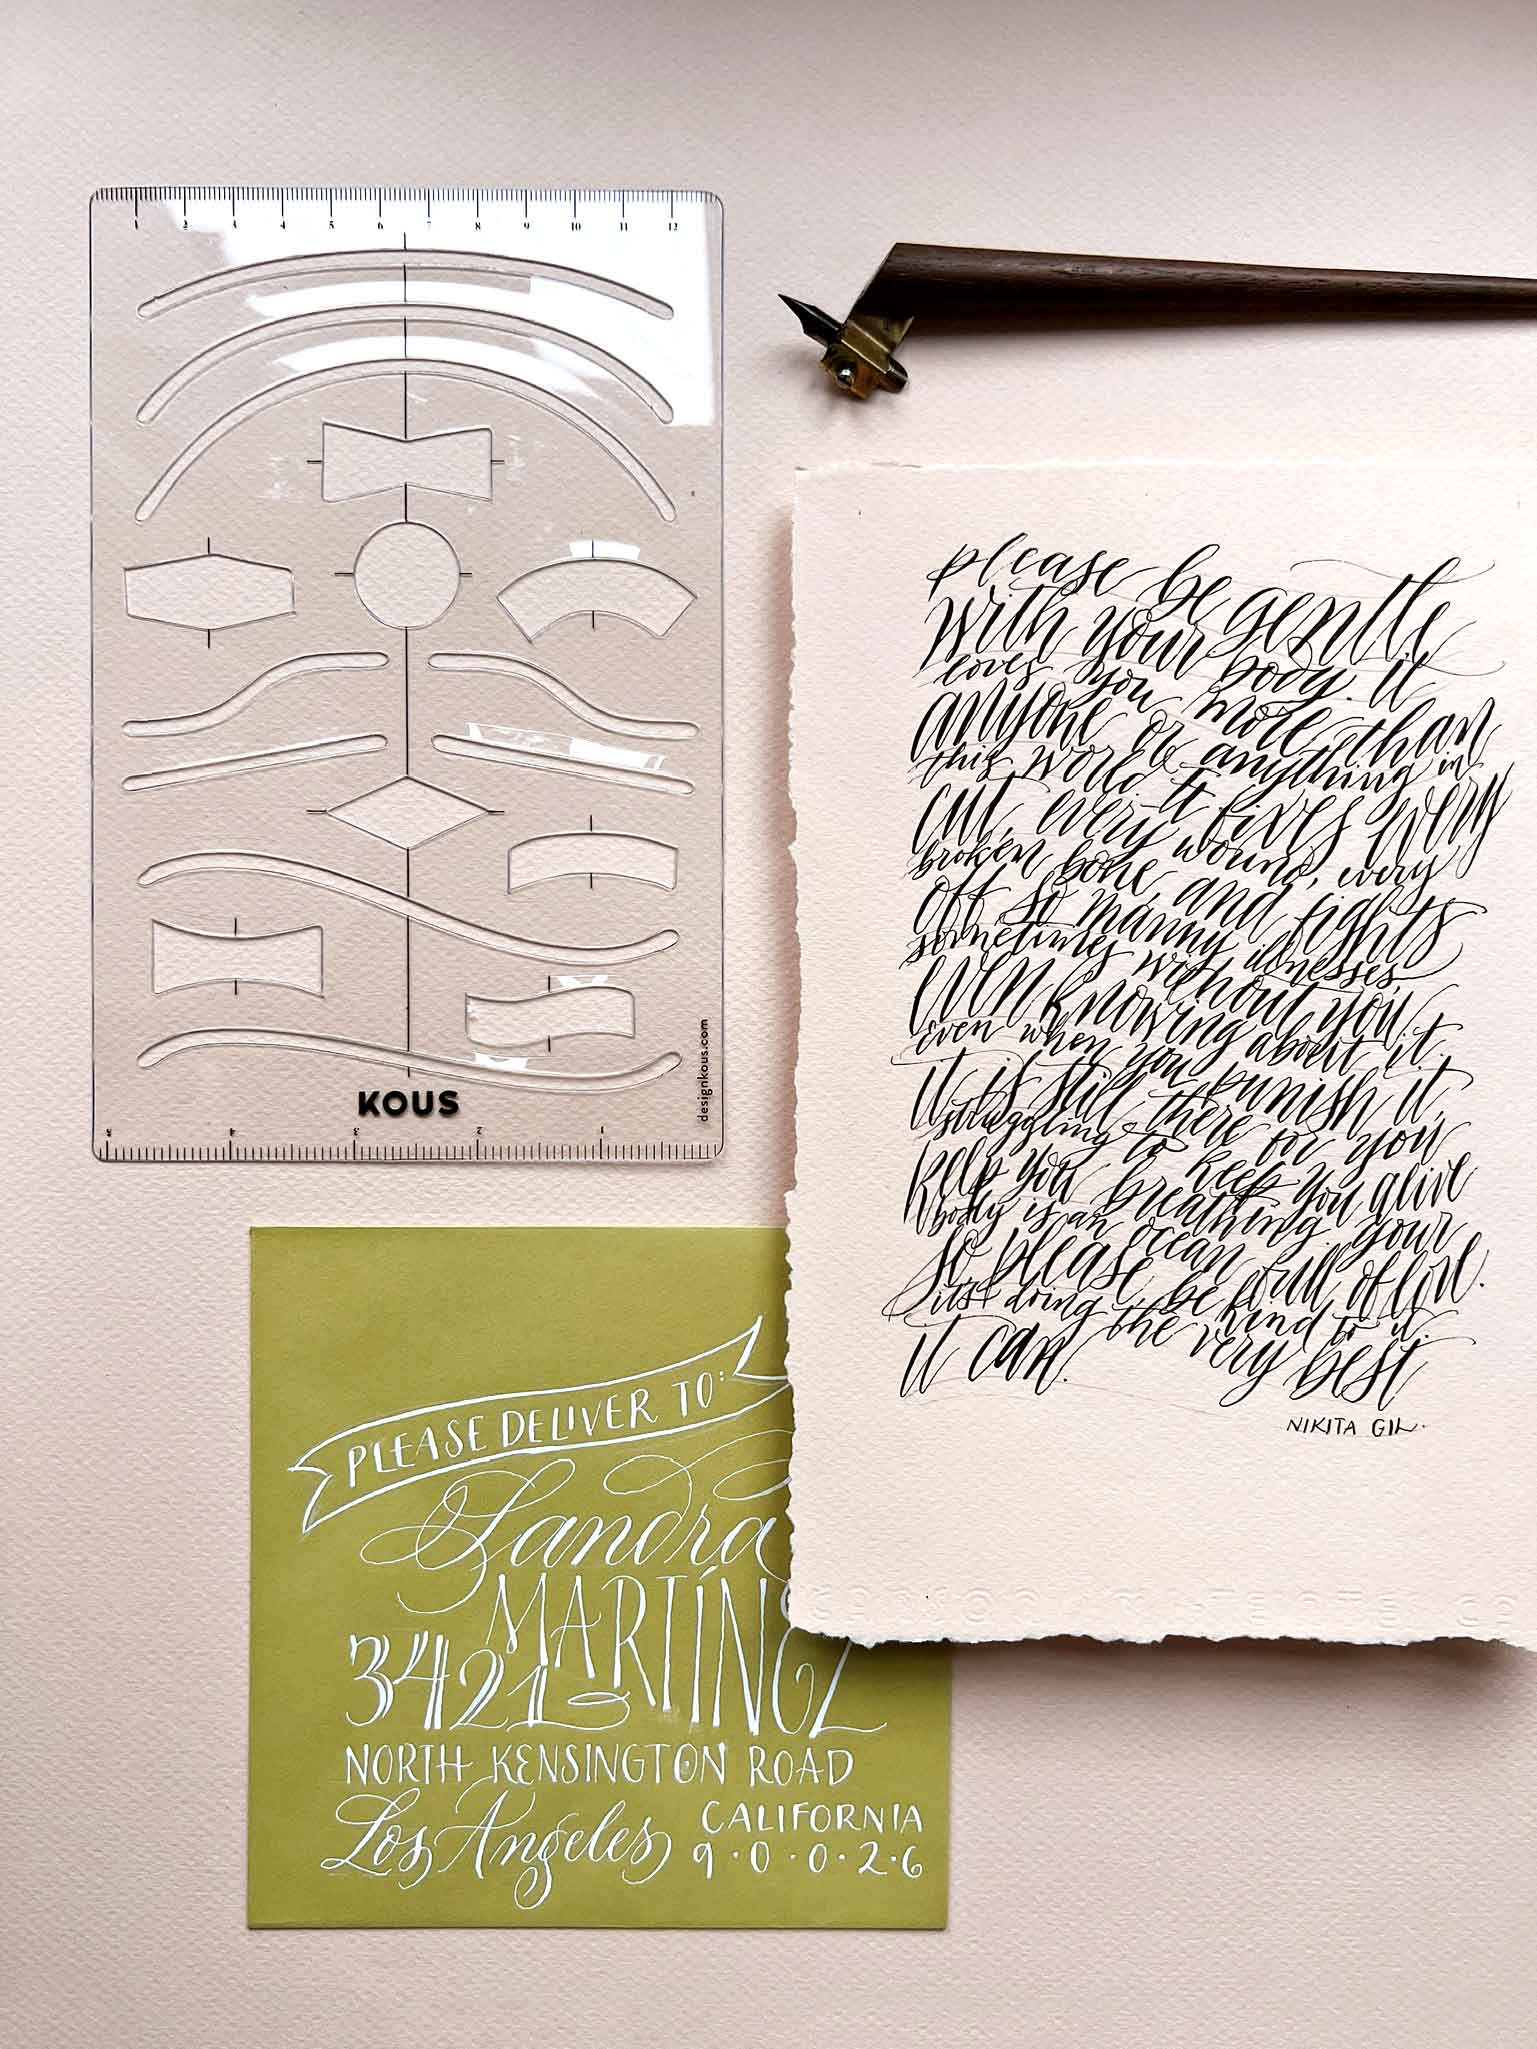 1 2 3 4 5 6 7 8 9 10 11 12
designkous.com
KOUS
5 4 3 2 1
please be gentle
with your body. it
loves you more than
anyone or anything in
this world it fixes every
cut, every wound, every
broken bone, and fights
off so manny illnesses,
sometimes without you
even knowing about it.
even when you punish it
it is still there for you,
struggling to keep you alive
keep you breathing. your
body is an ocean full of love.
so please, be kind to it.
its doing the very best
it can.
NIKITA GILL.
PLEASE DELIVER TO:
Sandra
MARTÍNEZ
3421
NORTH KENSINGTON ROAD
Los Angeles CALIFORNIA
9·0·0·2·6